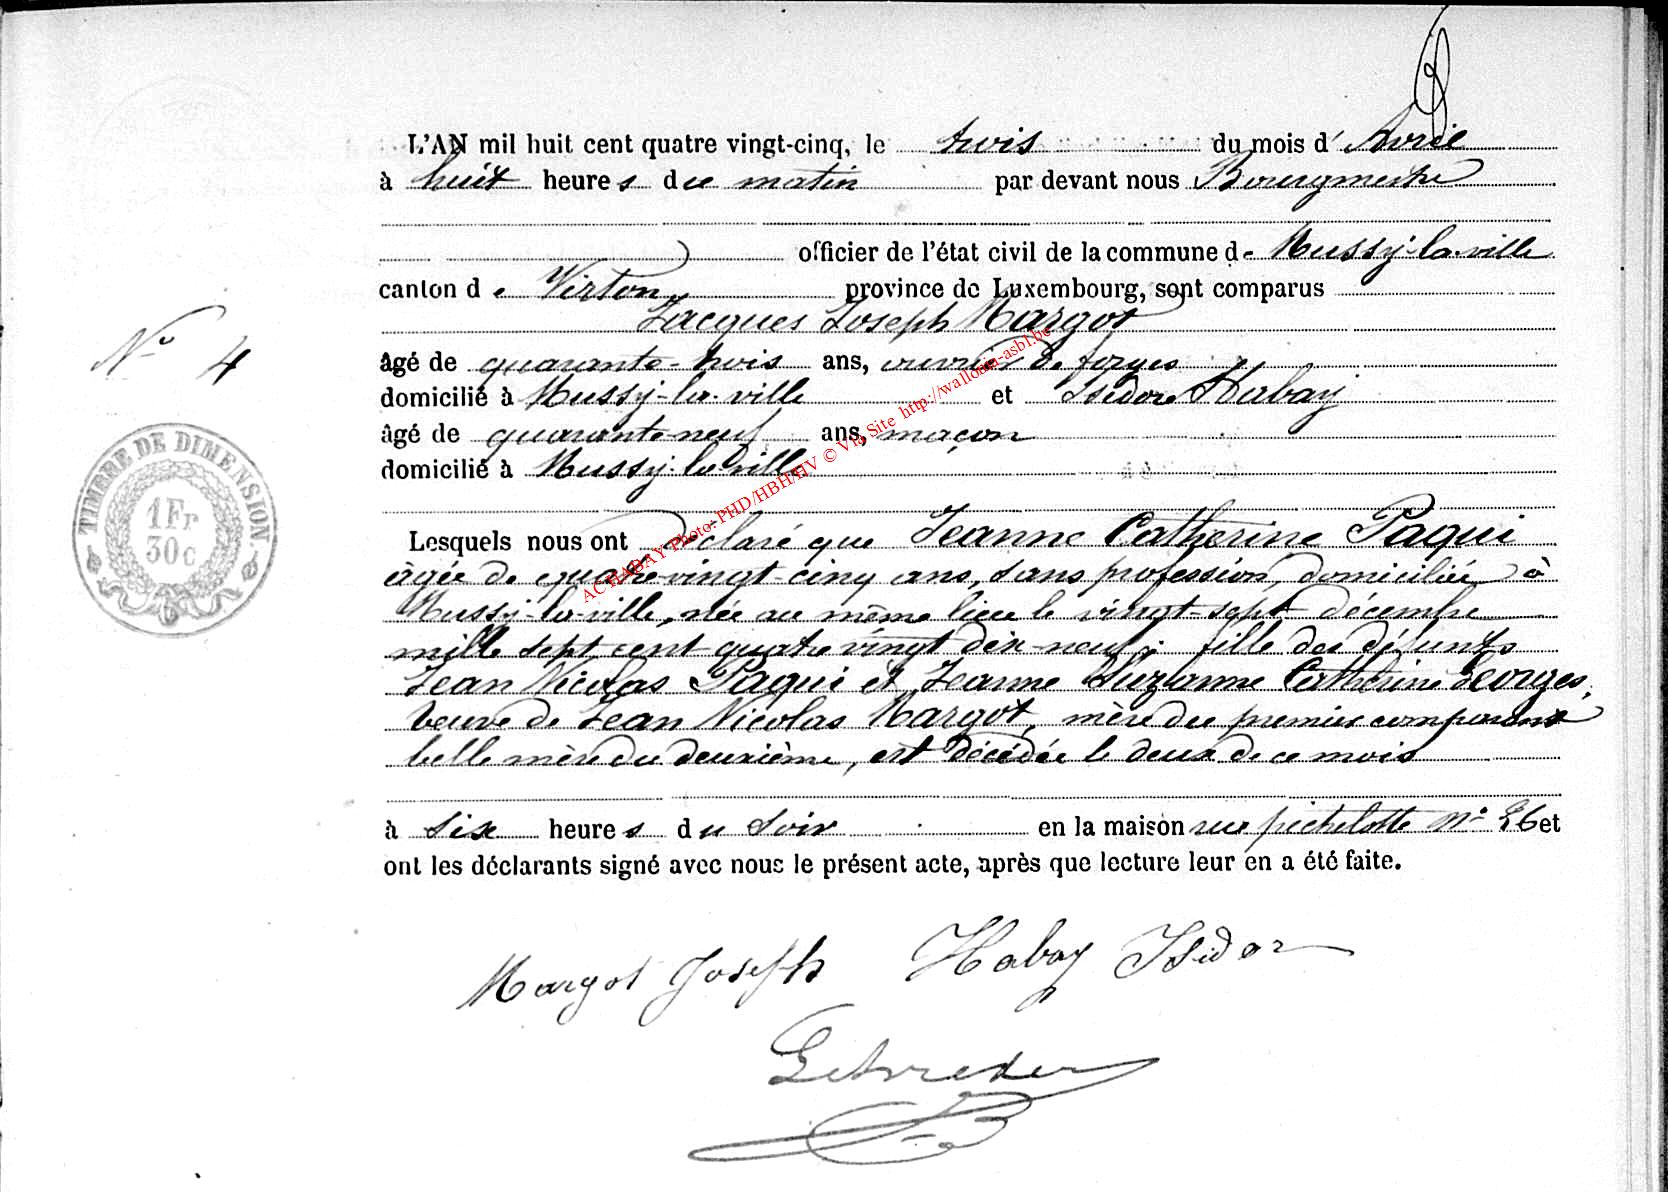 L'AN mil huit cent quatre vingt-cinq, le trois du mois d' Avril
à huit heures du matin par devant nous Bourgmestre
officier de l'état civil de la commune de Mussy-la-ville
canton de Virton province de Luxembourg, sont comparus
Jacques Joseph Margot
âgé de quarante-trois ans, ouvrier de forges
N° 4
domicilié à Mussy-la-ville et Isidore Habay
âgé de quarante-neuf ans, maçon
domicilié à Mussy-la-ville
TIMBRE DE DIMENSION
1Fr
30c
AC HABAY Photo: PHD/HBH/HV © Via Site http://wallonia-asbl.be
Lesquels nous ont déclaré que Jeanne Catherine Paqui
âgée de quatre-vingt-cinq ans, sans profession, domiciliée à
Mussy-la-ville, née au même lieu le vingt-sept décembre
mille sept cent quatre vingt dix-neuf; fille des défunts
Jean Nicolas Paqui et Jeanne Suzanne Catherine Georges,
veuve de Jean Nicolas Margot, mère du premier comparant
belle mère du deuxième, est décédée le deux de ce mois
à six heures du soir en la maison rue pichelotte n° 26 et
ont les déclarants signé avec nous le présent acte, après que lecture leur en a été faite.
Margot Joseph Habay Isidor